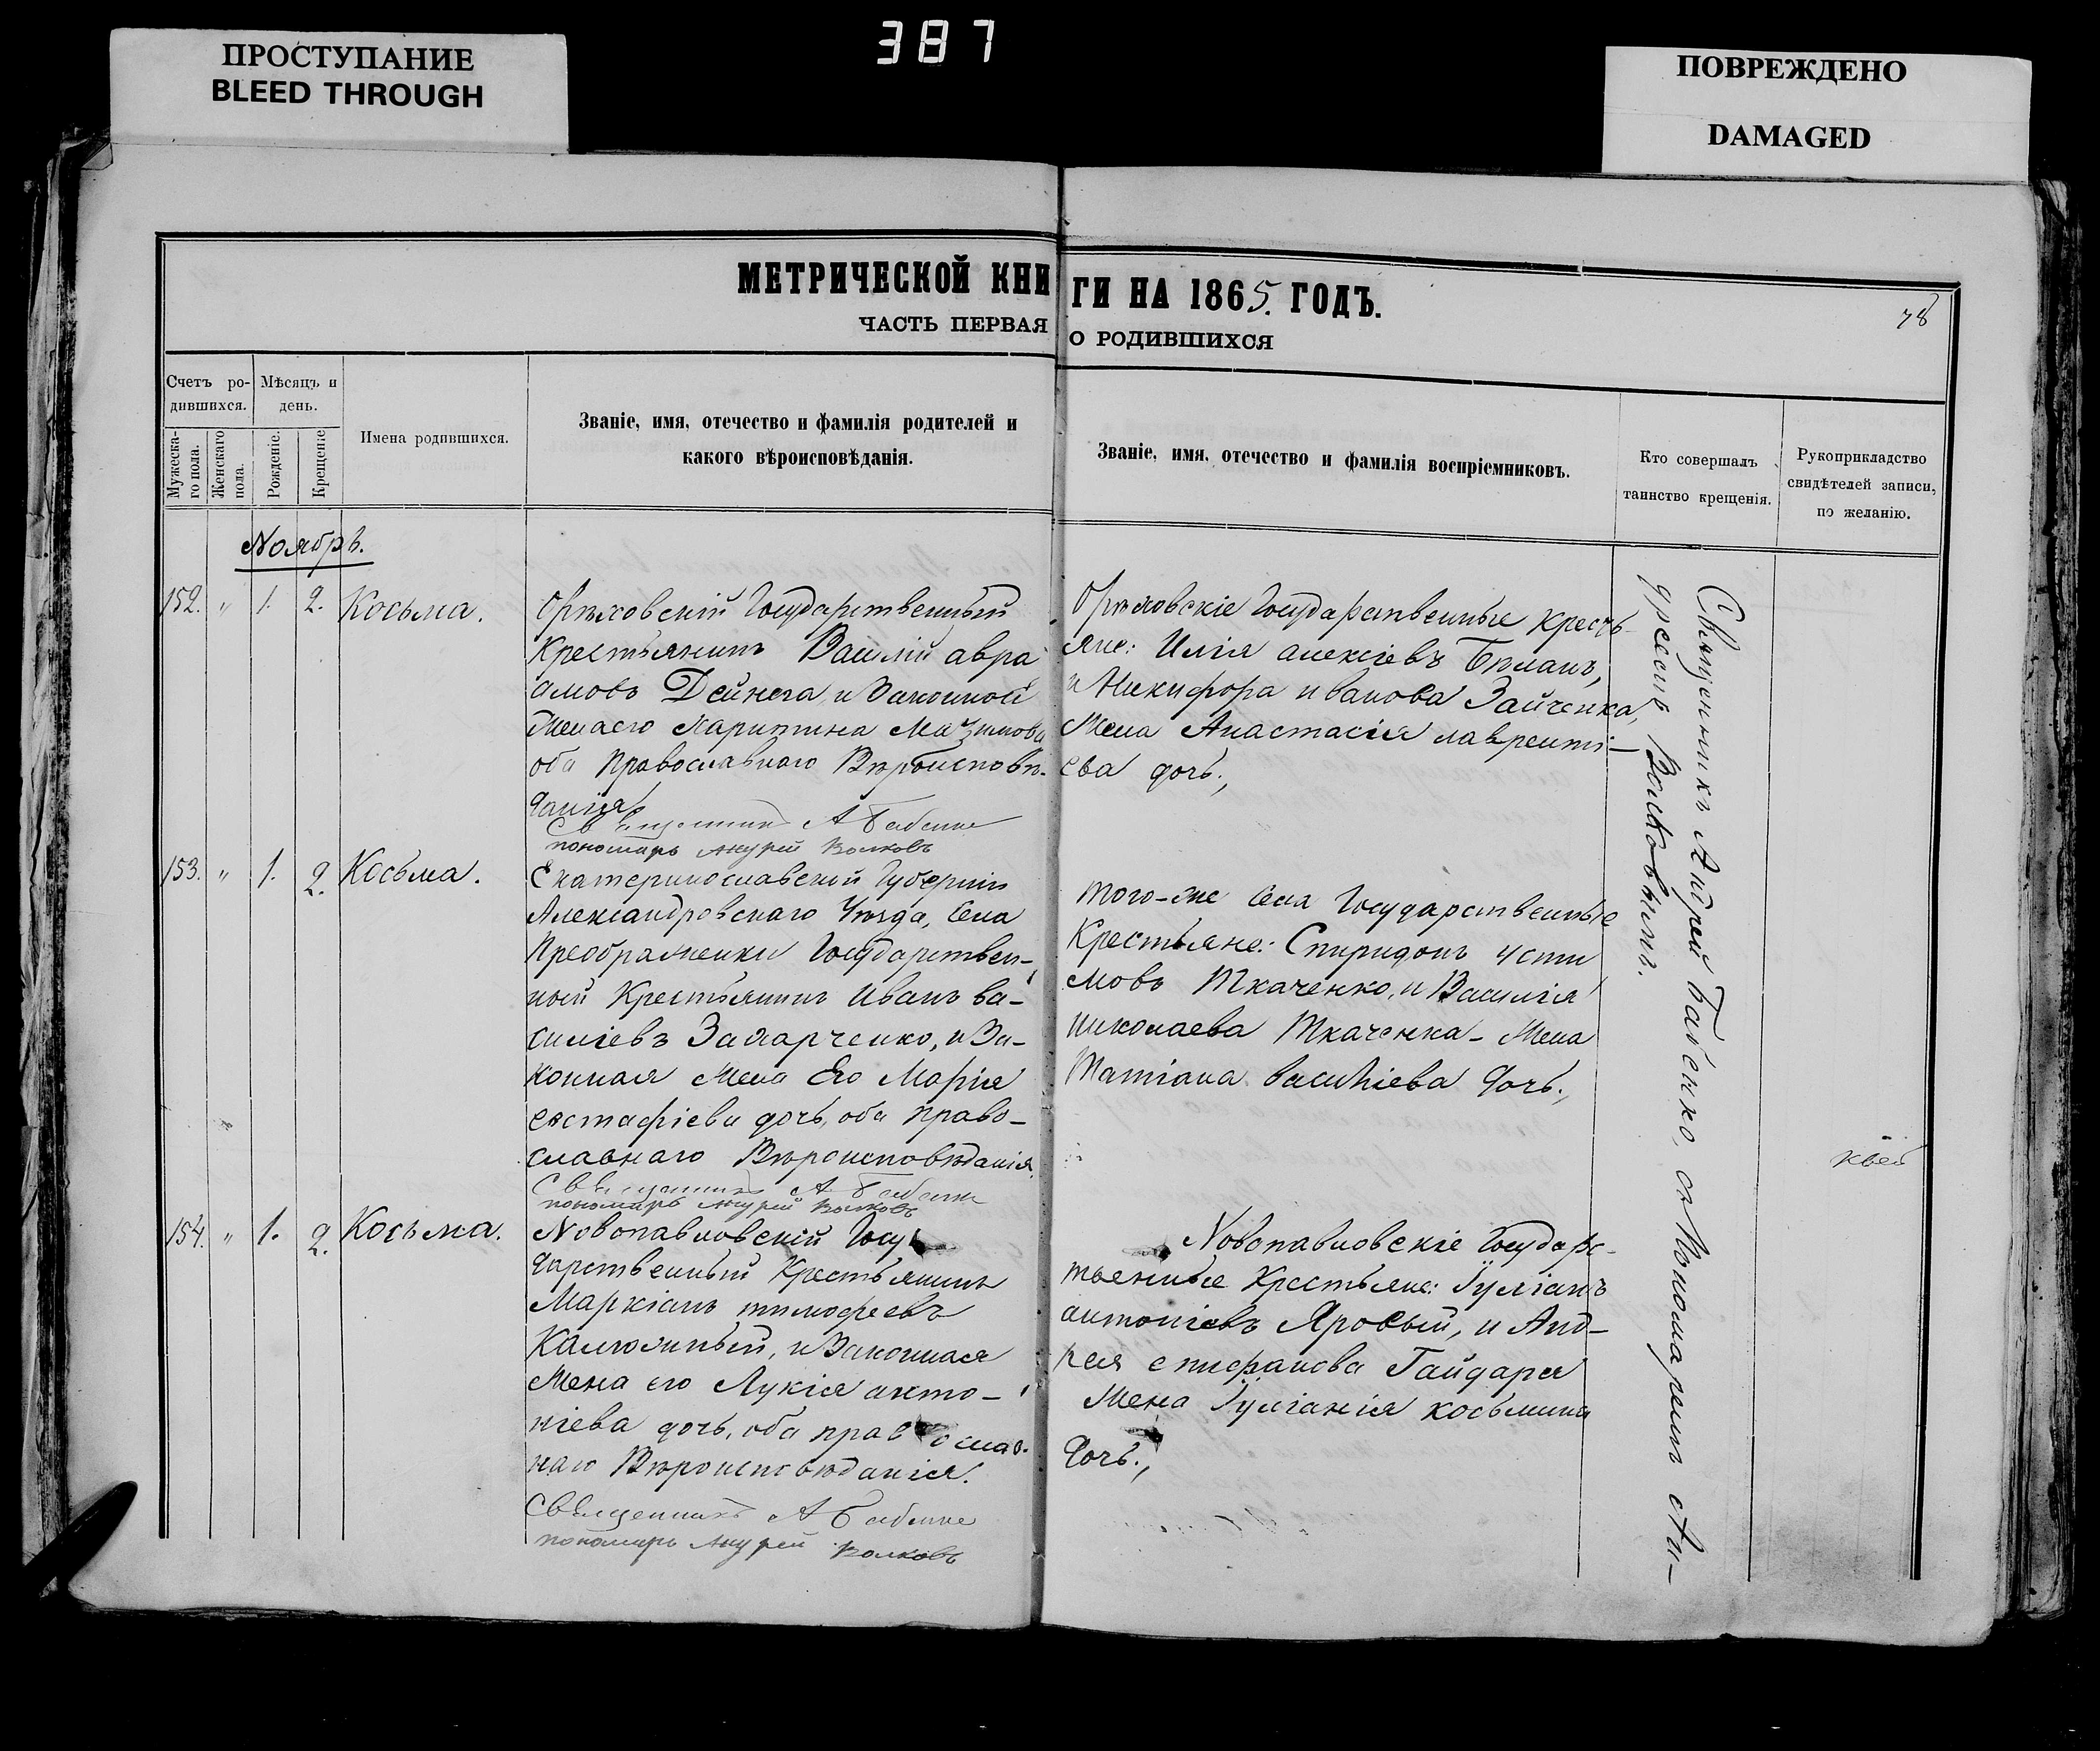 387
ПРОСТУПАНИЕ
BLEED THROUGH
ПОВРЕЖДЕНО
DAMAGED
МЕТРИЧЕСКОЙ КНИГИ НА 1865. ГОДЪ.
ЧАСТЬ ПЕРВАЯ О РОДИВШИХСЯ
78
Счетъ ро-
дившихся.
Мѣсяцъ и
день.
Мужеска-
го пола.
Женскаго
пола.
Рожденіе.
Крещеніе
Имена родившихся.
Званіе, имя, отечество и фамилія родителей и
какого вѣроисповѣданія.
Званіе, имя, отечество и фамилія воспріемниковъ.
Кто совершалъ
таинство крещенія.
Рукоприкладство
свидѣтелей записи,
по желанію.
Ноябрь.
152. " 1. 2. Косьма.
Орѣховскій Государственный
Крестьянинъ Василій авра
амовъ Дейнега, и Законной
Жена его Харитина
оба Православнаго Вѣроисповѣ-
данія
Священникъ А Бабенко
пономарь Андрей Волковъ
Орѣховскіе Государственные Кресть-
яне: Илія алексіевъ
и Никифора иванова Зайченка,
Жена Анастасія лавренті-
ева дочь.,
153. " 1. 2. Косьма.
Екатеринославской Губерніи
Александровскаго Уѣзда, Села
Преображенки Государствен-
ный Крестьянинъ Иванъ ва-
силіевъ Захарченко, и За-
конная Жена Его Марія
евстафіева дочь, оба право-
славнаго Вѣроисповѣданія.
Священникъ А Бабенко
пономарь Андрей Волковъ
Того-же Села Государственные
Крестьяне: Спиридонъ усти
мовъ Ткаченко, и Василія
николаева Ткаченка- Жена
Татіана василіева Дочь.,
154. " 1. 2. Косьма.
Новопавловскій Госу
дарственный Крестьянинъ
Маркіанъ тимофеевъ
Калюжный, и Законная
Жена его Лукія анто-
ніева дочь, оба православ-
наго Вѣроисповѣданія.
Священникъ А Бабенко
пономарь Андрей Волковъ
Новопавловскіе Государс-
твенные Крестьяне: Іуліанъ
антоніевъ Яровый, и Анд-
рея епифанова Гайдаря
Жена Іуліанія косьмина
Дочь.,
Священникъ Андрей Бабенко, съ Пономаремъ Ан-
дреемъ Волковымъ.